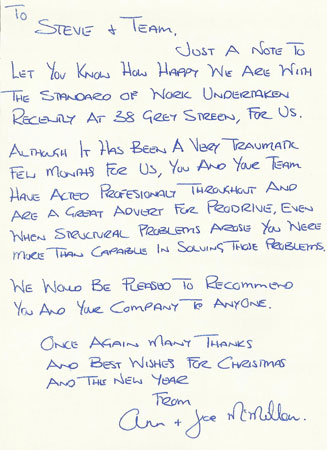 To
Steve + Team,
Just A Note To
Let You Know How Happy We Are With
The Standard of Work Undertaken
Recently At 38 Grey Streen, For Us.
Although It Has Been A Very Traumatic
Few Months For Us, You And Your Team
Have Acted Profesionaly Throughout And
Are A Great Advert For Prodrive, Even
When Structural Problems Arose You Were
More Than Capable In Solving Those Problems.
We Would Be Pleased To Recommend
You And Your Company To Anyone.
Once Again Many Thanks
And Best Wishes For Christmas
And The New Year
From
Ann + Joe McMillan.